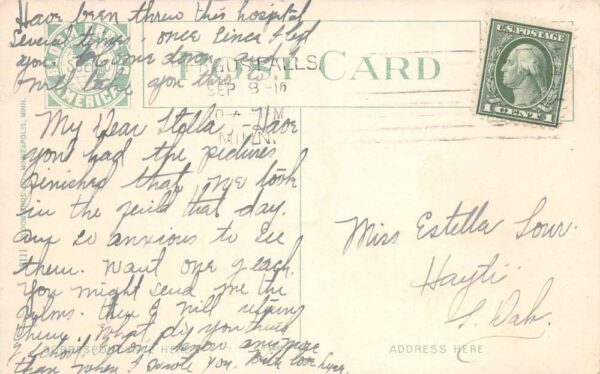 Have been threw this hospital
several times - once since I left
you. Come down and
I will take you
POST CARD
U.S. POSTAGE
1 CENT 1
FALLS
SEP 8-16
M
MINN.
AMERICE
My Dear Stella; - Have
you had the pictures
finished that we took
in the field that day.
am so anxious to see
them. Want one of each.
You might send me the
films. then I will return
them. What do you think
of school? I don't know anymore
than when I wrote you. With love
Miss Estella Sour.
Hayti
S. Dak.
CORRESPONDENCE HERE
ADDRESS HERE
MINNEAPOLIS, MINN.